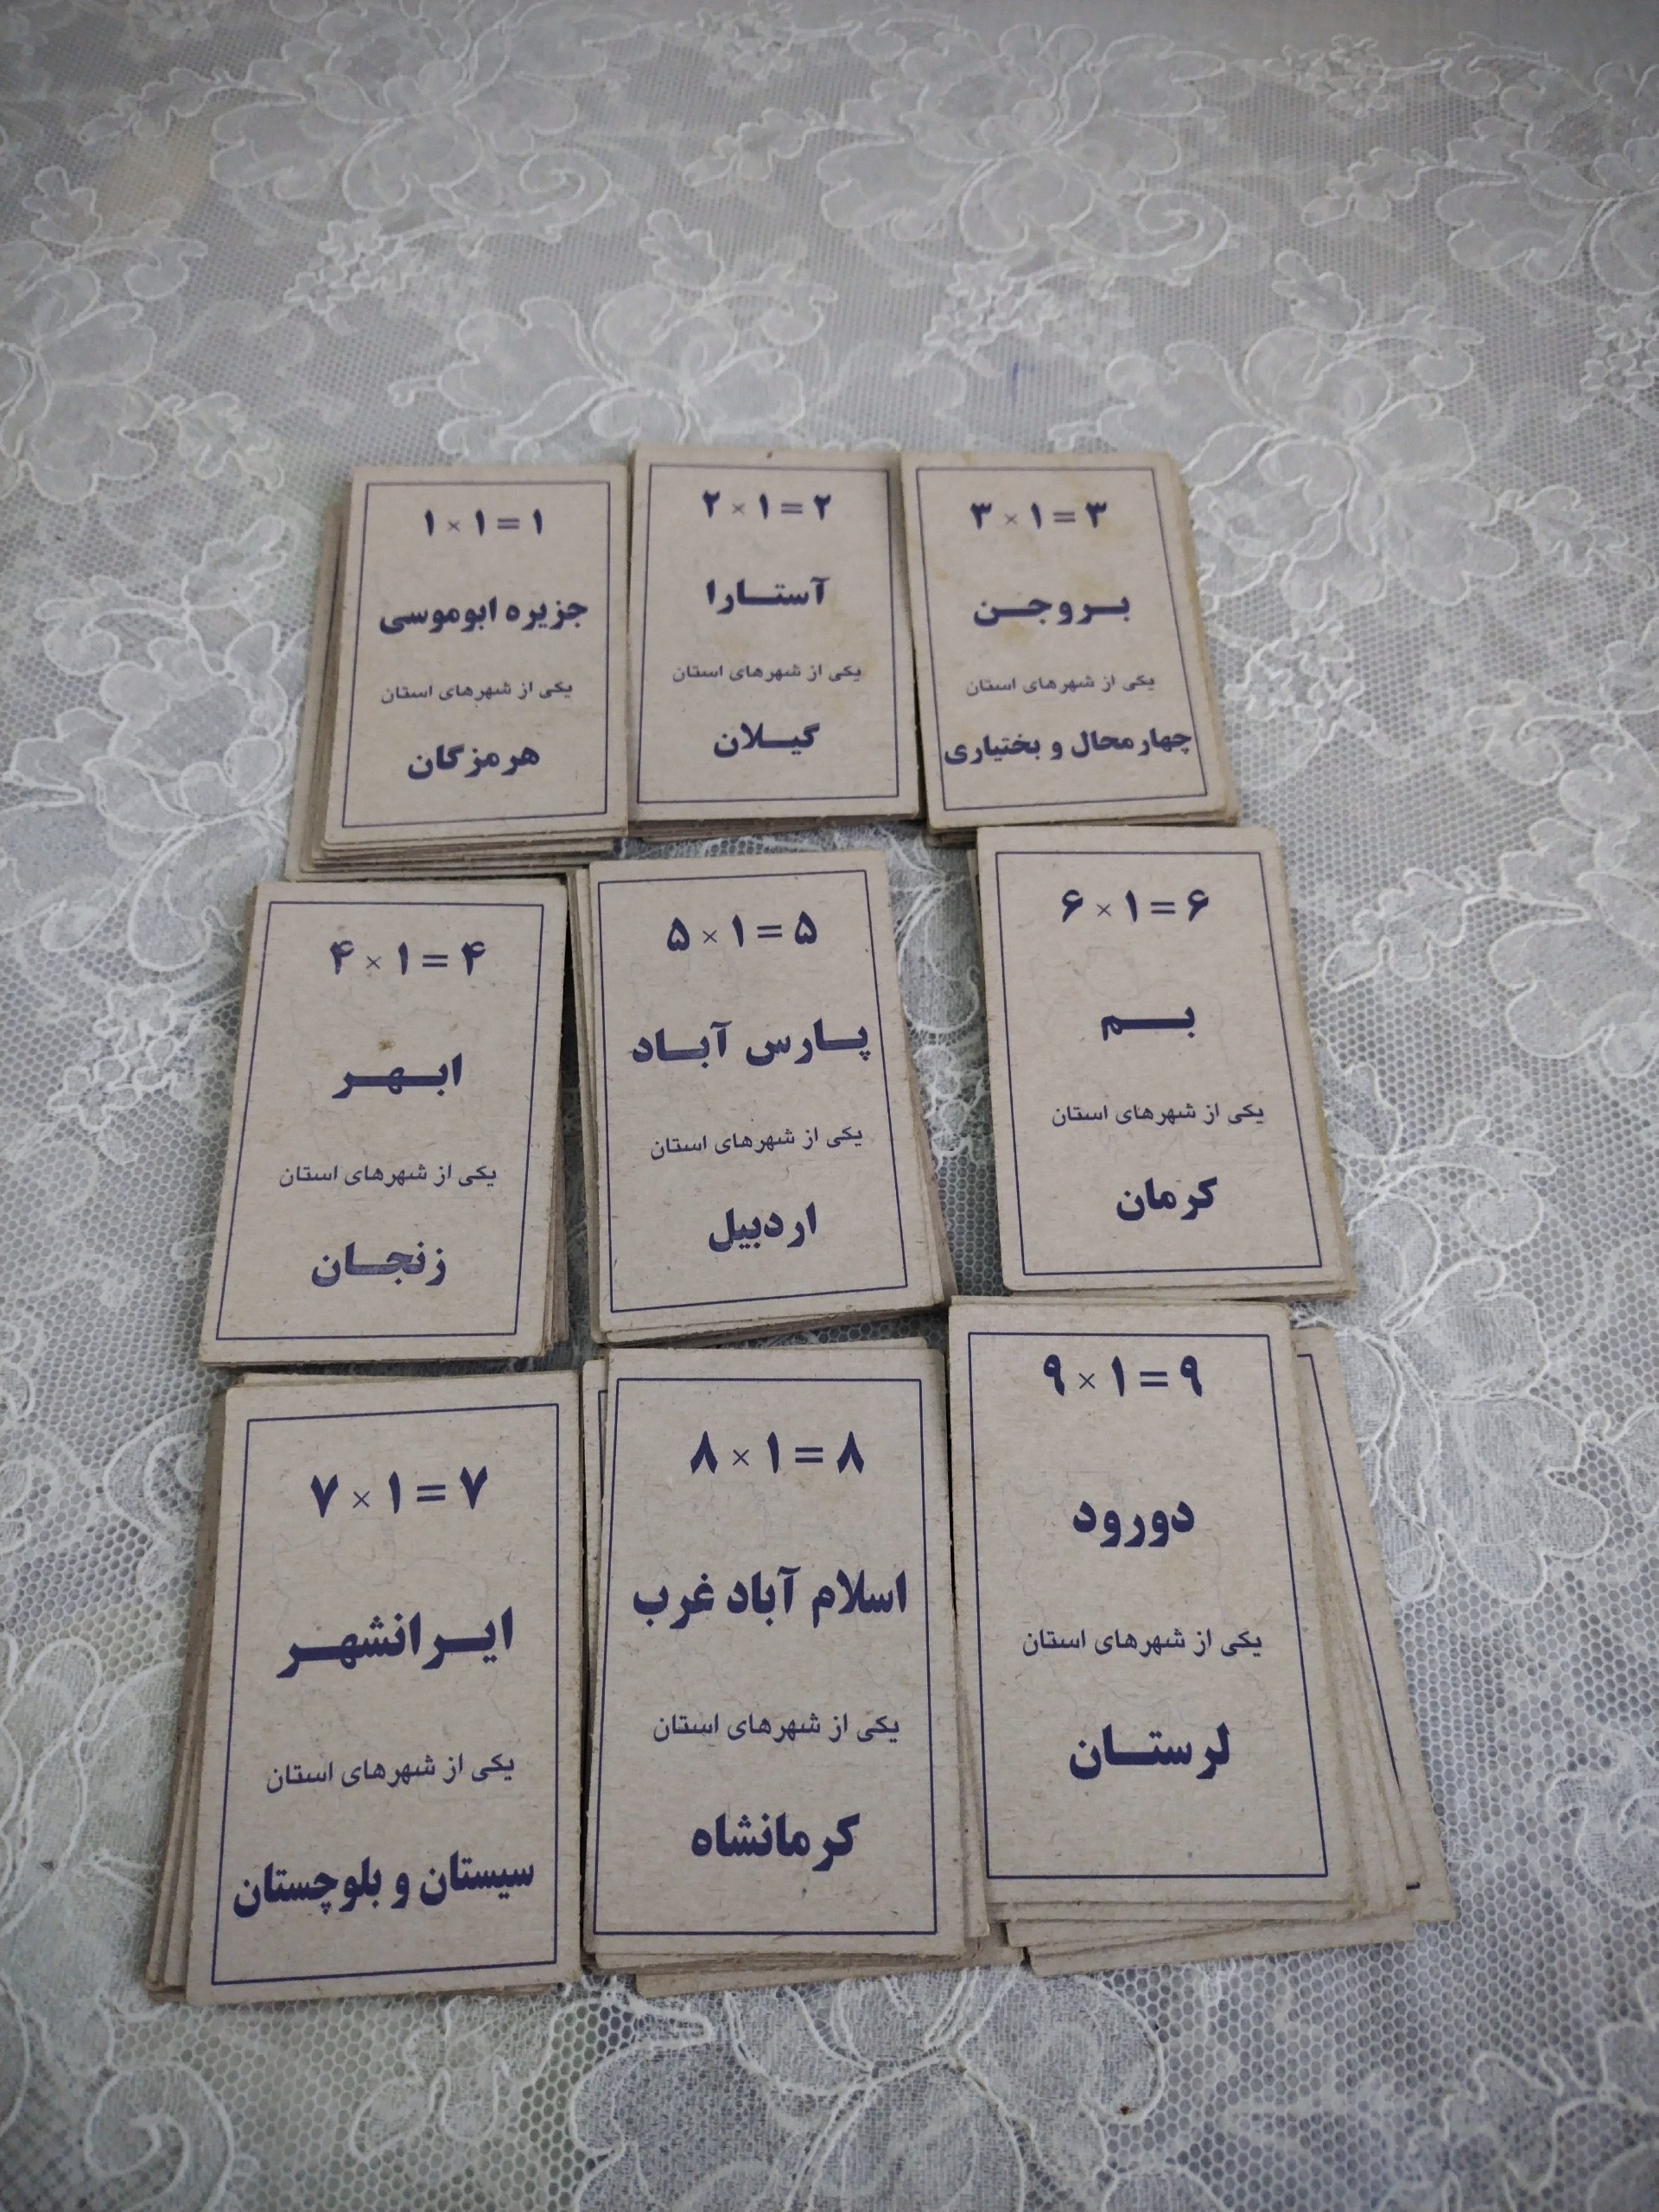 ۱ × ۱ = ۱
جزیره ابوموسی
یکی از شهرهای استان
هرمزگان
۲ × ۱ = ۲
آستارا
یکی از شهرهای استان
گیلان
۳ × ۱ = ۳
بروجن
یکی از شهرهای استان
چهارمحال و بختیاری
۴ × ۱ = ۴
ابهر
یکی از شهرهای استان
زنجان
۵ × ۱ = ۵
پارس آباد
یکی از شهرهای استان
اردبیل
۶ × ۱ = ۶
بم
یکی از شهرهای استان
کرمان
۷ × ۱ = ۷
ایرانشهر
یکی از شهرهای استان
سیستان و بلوچستان
۸ × ۱ = ۸
اسلام آباد غرب
یکی از شهرهای استان
کرمانشاه
۹ × ۱ = ۹
دورود
یکی از شهرهای استان
لرستان